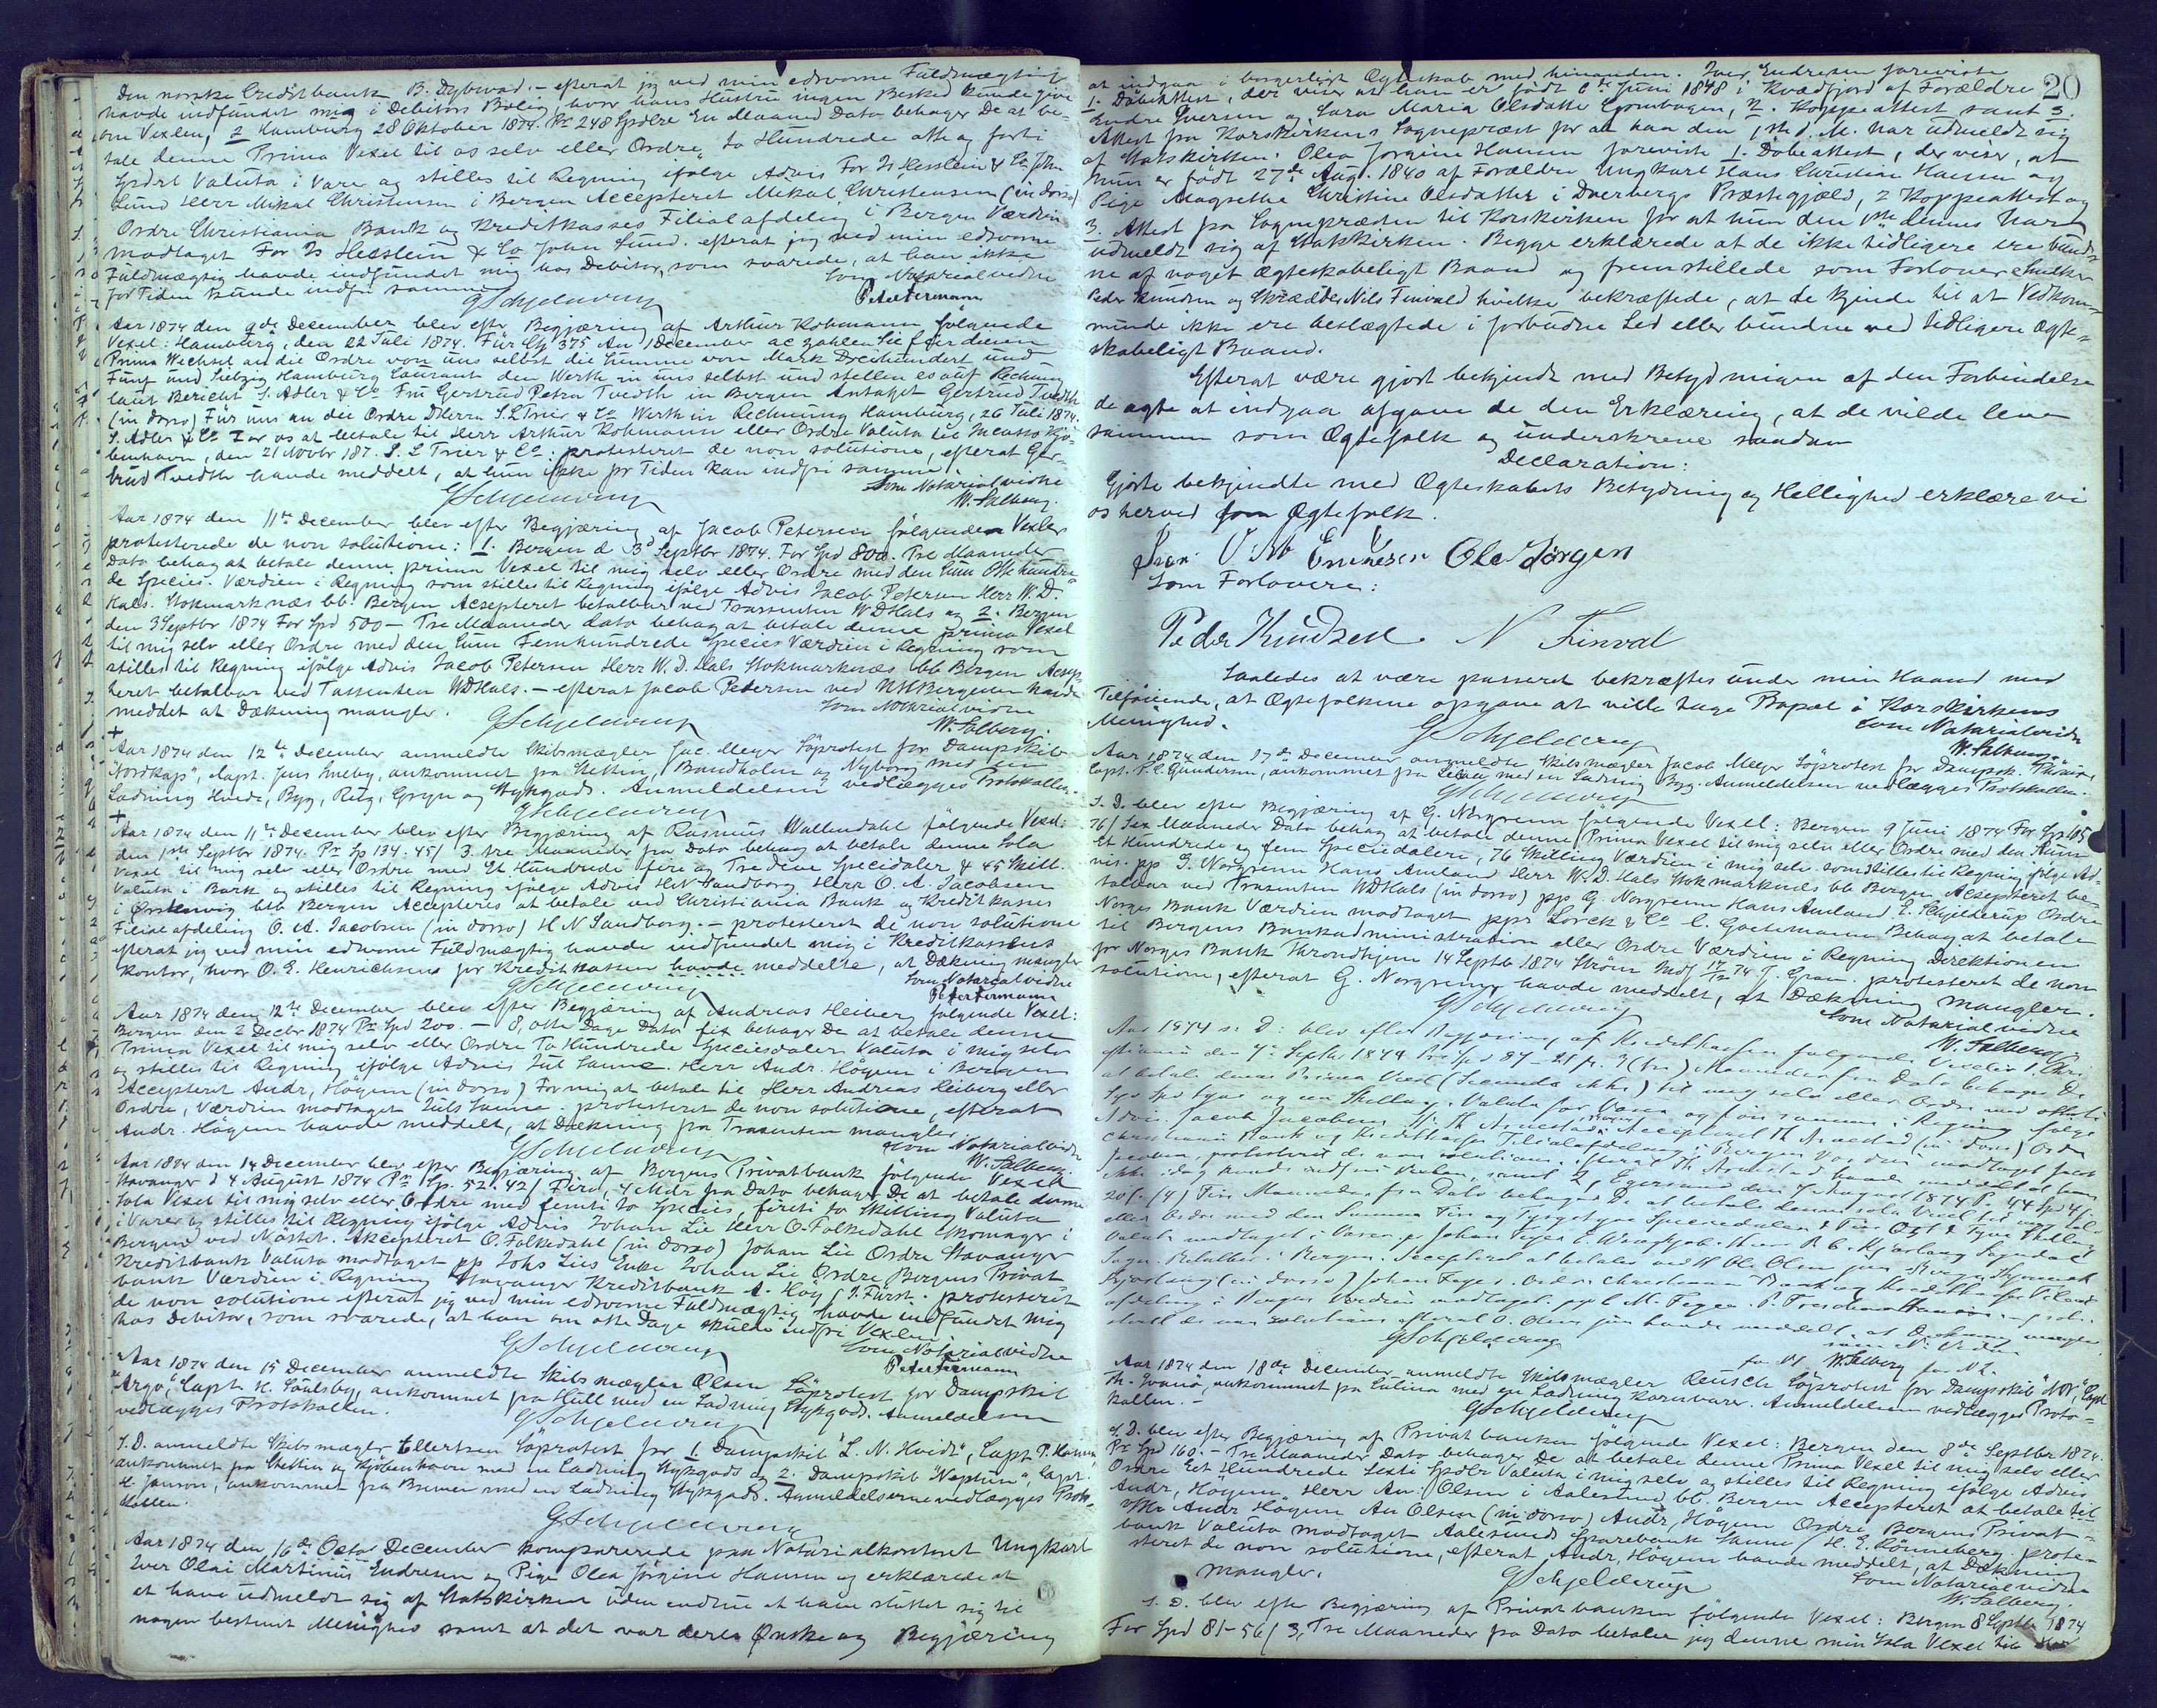 Den norske Creditbank B. Dybwad. – efterat jeg ved min edsvorne Fuldmægtig
havde indfundet mig i Debitors Bolig, hvor hans Hustru ingen Besked kunde give
om Vexlen, 2 Hamburg 28 Oktober 1874. Pr 248 Spdlr En Maaned Dato behager De at be-
tale denne Prima Vexel til os selv eller Ordre to Hundrede otte og forti
Spdlr Valuta i Vare og stilles til Regning ifølge Advis For Is Hesslein & Co John
Lund Herr Mikal Christensen i Bergen Accepteret Mikal Christensen (in dorso)
Ordre Christiania Bank og Kreditkasses Filialafdeling i Bergen Værdien
modtaget For Is Hesslein & Co John Lund. efterat jeg ved min edsvorne
Fuldmægtig havde indfundet mig hos Debitor, som svarede, at han ikke
for Tiden kunde indfri samme.
Som Notarialvidne
GSchjelderup
Peter Fermann
Aar 1874 den 9de December blev efter Begjæring af Arthur Kohmann følgende
Vexel: Hamburg, den 22 Juli 1874. Für CM 375 An 1 December ac zahlen Sie für diesen
Prima Wechsel an die Ordre von uns selbst die Summe von Mark Dreihundert und
Fünf und Siebzig Hamburg Courant den Werth in uns selbst und stellen es auf Rechnung
laut Bericht S. Adler & Co Frü Gertrud Petra Tvedth in Bergen Antaget Gertrud Tvedth
(in dorso) Für uns an die Ordre DHerrn S. L Trier & Co Werth in Rechnung Hamburg, 26 Juli 1874.
S. Adler & Co For os at betale til Herr Arthur Kohmann eller Ordre Valuta til Incasso Kjö-
benhavn, den 21 Novbr 187. S. L Trier & Co: protesteret de non solutione, efterat Ger-
trud Tvedth havde meddelt, at hun ikke for Tiden kan indfri samme.
Som Notarialvidne
GSchjelderup
W. Salberg.
Aar 1874 den 11te December blev efter Begjæring af Jacob Petersen følgende Vexler
protesterede de non solutione: 1. Bergen d 3d Septbr 1874. For Spd 800. Tre Maaneder
Dato behag at betale denne prima Vexel til mig selv eller Ordre med den Sum Otte hundre-
de Species. Værdien i Regning som stilles til Regning ifølge Advis Jacob Petersen Herr W. D.
Hals. Stokmarknæs bb. Bergen Accepteret betalbar ved Trassenten WDHals og 2. Bergen
den 3 Septbr 1874 For Spd 500 – Tre Maaneder dato behag at betale denne prima Vexel
til mig selv eller Ordre med den Sum Femhundrede Species Værdien i Regning som
stilles til Regning ifølge Advis Jacob Petersen Herr W. D. Hals Stokmarknæs bb Bergen Accep-
teret betalbar ved Tassenten WDHals. – efterat Jacob Petersen ved havde
meddelt at Dækning mangler.
Som Notarialvidne
GSchjelderup
W. Salberg.
+
Aar 1874 den 12te December anmeldte Skibsmægler Jac. Meyer Söprotest for Dampskib
"Nordkap", Capt. Jens Smeby, ankommet fra Stettin, Bandholm og Nyborg med en
Ladning Hvede, Byg, Rug, Gryn og Stykgods. Anmeldelsen vedlægges Protokollen.
GSchjelderup
+
Aar 1874 den 11te December blev efter Begjæring af Rasmus Wallendahl følgende Vexel:
den 1ste Septbr 1874. Pr Sp 134: 45/ 3. tre Maaneder fra Dato behag at betale denne Sola
Vexel til mig selv eller Ordre med Et Hundrede fire og Tredive Specidaler & 45 Skill.
Valuta i Bark og stilles til Regning ifølge Advis H. N Sandborg. Herr O. A. Jacobsen
i Ørstenvig bb Bergen Accepteres at betale ved Christiania Bank og Kreditkasses
Filialafdeling O. A. Jacobsen (in dorso) H N Sandborg. – protesteret de non solutione
efterat jeg ved min edsvorne Fuldmægtig havde indfundet mig i Kreditkassens
Kontor, hvor O. E. Henrichsens for Kreditkassen havde meddelte, at Dækning mangler
Som Notarialvidne
GSchjelderup
Peter Fermann
Aar 1874 den 12te December blev efter Begjæring af Andreas Heiberg følgende Vexel:
Bergen den 2 Decbr 1874 Pr Spd 200. – 8, otte Dage Dato fix behager De at betale denne
Prima Vexel til mig selv eller Ordre To Hundrede Speciesdaler Valuta i mig selv
og stilles til Regning ifølge Advis Juls Sanne. Herr Andr. Högem i Bergen
Accepteret Andr. Högem (in dorso) For mig at betale til Herr Andreas Heiberg eller
Ordre, Værdien modtaget Juls Sanne. protesteret de non solutione, efterat
Andr. Högem havde meddelt, at Dækning fra Trasenten mangler.
Som Notarialvidne
GSchjelderup
W. Salberg.
Aar 1874 den 14 December blev efter Begjæring af Bergens Privatbank følgende Vexel
Stavanger d 4 August 1874 Pr Sp. 52. 42/ Fire, 4 Mdr fra Dato behager De at betale denne
Sola Vexel til mig selv eller Ordre med femti to Species, firti to Skilling Valuta
i Varer og stilles til Regning ifølge Advis Johan Lie Herr O. Folkedahl Skomager i
Bergen ved Nöstet. Akcepteret O. Folkedahl (in dorso) Johan Lie Ordre Stavanger
Kreditbank Valuta modtaget pp Johs Lies Enke Johan Lie Ordre Bergens Privat
bank Værdien i Regning Stavanger Kreditbank A. Höy / J. Fürst. protesteret
de non solutione efterat jeg ved min edsvorne Fuldmægtig havde indfundet mig
hos Debitor, som svarede, at han om otte Dage skulde indfri Vexlen.
Som Notarialvidne
GSchjelderup
Peter Fermann
Aar 1874 den 15 December anmeldte Skibsmægler Olsen Söprotest for Dampskib
"Argo", Capt. H. Soulsby, ankommet fra Hull med en Ladning Stykgods. Anmeldelsen
vedlægges Protokollen.
GSchjelderup
S. D. anmeldte Skibsmægler Ellertsen Söprotest for 1. Dampskib "L. N. Hvidt", Capt. P. Hansen,
ankommet fra Stettin og Kjøbenhavn med en Ladning Stykgods og 2. Dampskib "Neptun", Capt.
H. Janson, ankommet fra Bremen med en Ladning Stykgods. Anmeldelserne vedlægges Proto-
kollen.
GSchjelderup
Aar 1874 den 16de December komparerede paa Notarialkontoret Ungkarl
Iver Olai Martinus Endresen og Pige Olea Jörgine Hansen og erklærede at
at have udmeldt sig af Statskirken uden endnu at have sluttet sig til
nogen bestemt Menighed samt at det var deres Ønske og Begjæring
20
at indgaa i borgerligt Ægteskab med hinanden. Iver Endresen foreviste
1. Dobeattest, der viser at han er født 6te Juni 1848 i Kvædfjord af Forældre
Endre Iversen og Sara Maria Olsdatter, 2. Koppeattest samt 3.
Attest fra Korskirkens Sognepræst for at han den 1ste d. M. har udmeldt sig
af Statskirken. Olea Jørgine Hansen foreviste 1. Dobeattest, der viser, at
hun er født 27de Aug. 1840 af Forældre Ungkarl Hans Christian Hansen og
Pige Magrethe Christine Olsdatter i Dverbergs Præstegjæld, 2 Koppeattest og
3. Attest fra Sognepræsten til Korskirken for at hun den 1ste dennes har
udmeldt sig af Statskirken. Begge erklærede at de ikke tidligere ere bund-
ne af noget ægteskabeligt Baand og fremstillede som Forlovere Snedker
Peder Knudsen og Skrædder Nils Finvald hvilke bekræftede, at de kjende til at Vedkom-
mende ikke ere beslægtede i forbudne Led eller bundne ved tidligere ægte-
skabeligt Baand.
Efterat være gjort bekjendt med Betydningen af den Forbindelse
de agte at indgaa afgave de den Erklæring, at de vilde leve
sammen som Ægtefolk og underskreve saadan
Declaration:
Gjorte bekjendte med Ægteskabets Betydning og Hellighed erklære vi
os herved som Ægtefolk.
Som Forlovere:
Peder Knudsen N Finval
Saaledes at være passeret bekræftes under min Haand med
Tilføiende, at Ægtefolkene opgave at ville tage Bopæl i Korskirkens
Menighed.
Som Notarialvidne
GSchjelderup
W. Salberg.
Aar 1874 den 17de December anmeldte Skibsmægler Jacob Meyer Söprotest for Dampsk.
Capt. P. C. Gundersen, ankommet fra Libau med en Ladning Byg. Anmeldelsen vedlægges Protokollen.
GSchjelderup
S. D. blev efter Begjæring af G. Norgrenn følgende Vexel: Bergen 9 Juni 1874 For Sp 105
76/ Sex Maaneder Dato behag at betale denne Prima Vexel til mig selv eller Ordre med den Sum
Et Hundrede og fem Speciedalere, 76 Skilling Værdien i mig selv som stilles til Regning ifølge Ad-
vis. pp G. Norgrenn Hans Amland Herr W. D. Hals Stokmarknæs bb Bergen Accepteret be-
talbar ved Trasenten WDHals (in dorso) pp G. Norgrenn Hans Amland E. Schjelderup Ordre
Norges Bank Værdien modtaget ppr Lorck & Co C. Goetemann Behag at betale
til Bergens Bankadministration eller Ordre Værdien i Regning Direktionen
for Norges Bank Throndhjem 14 Septb 1874 Ström J. Gram. protesteret de non
solutione, efterat G. Norgrenn havde meddelt, at Dækning mangler.
Som Notarialvidne
GSchjelderup
W. Salberg
Aar 1874 s: D: blev efter Begjæring af Kreditkassen følgende Vexler 1. Chri-
stiania den 7de Septbr 1874 3 (tre) Maaneder fra Dato behager De
at betale denne Prima Vexel (Secunda ikke) til mig selv eller Ordre med otteti
Syv Spd Tyve og en Skilling. Valuta for Varer og före samme i Regning ifølge
Advis Jacob Jacobsen Accepteret Th Arnestad (in dorso) Ordre
Christiania Bank og Kreditkasses Filialafdeling i Bergen Værdien modtaget Jacob
Jacobsen, protesteret de non solutione, efterat Th Arnestad havde meddelt at han
ikke idag kunde indfri Vexlen, samt 2, Egersund den 7 August 1874 Pr 44 Spd 4/
20/. (4) Fire Maaneder fra Dato behager De at betale denne sola Vexel til mig selv
eller Ordre med den Summa Fire og Fyrgetyve Speciedaler 4 Fire Ort & Tyve Skilling
Valuta modtaget i Varer
Betalbar i Bergen. Accepteret at betales ved Ole Olsen jun
(in dorso) Johan Feyer. Ordre Christiania Bank og Kreditkasses Filial
afdeling i Bergen Værdien modtaget.
de non solutione efterat O. Olsen jun havde meddelt, at Dækning mangler
som N. Vidne
GSchjelderup
W. Salberg
Aar 1874 den 18de December anmeldte Skibsmægler Reusch Söprotest for Dampskib "Nor", Capt
ankommet fra Sulina med en Ladning Kornvarer. Anmeldelsen vedlægges Proto-
kollen. –
GSchjelderup
S. D. blev efter Begjæring af Privatbanken følgende Vexel: Bergen den 8de Septbr 1874.
Pr Spd 160. – Tre Maaneder Dato behager De at betale denne Prima Vexel til mig selv eller
Ordre Eet Hundrede Sexti Spdlr Valuta i mig selv og stilles til Regning ifølge Advis
Andr. Högem. Herr An: Olsen i Aalesund bb. Bergen Accepteret at betale til
Hr Andr Högem An Olsen (in dorso) Andr, Högem Ordre Bergens Privat-
bank Valuta modtaget Aalesunds Sparebank Sanne / H. E. Rönneberg. prote-
steret de non solutione, efterat Andr, Högem havde meddelt, at Dækning
mangler.
Som Notarialvidne
GSchjelderup
W. Salberg.
S. D. blev efter Begjæring af Privatbanken følgende Vexel: Bergen 8 Septbr 1874
For Spd 81–56/ 3, Tre Maaneder fra Dato betaler jeg denne min Sola Vexel til